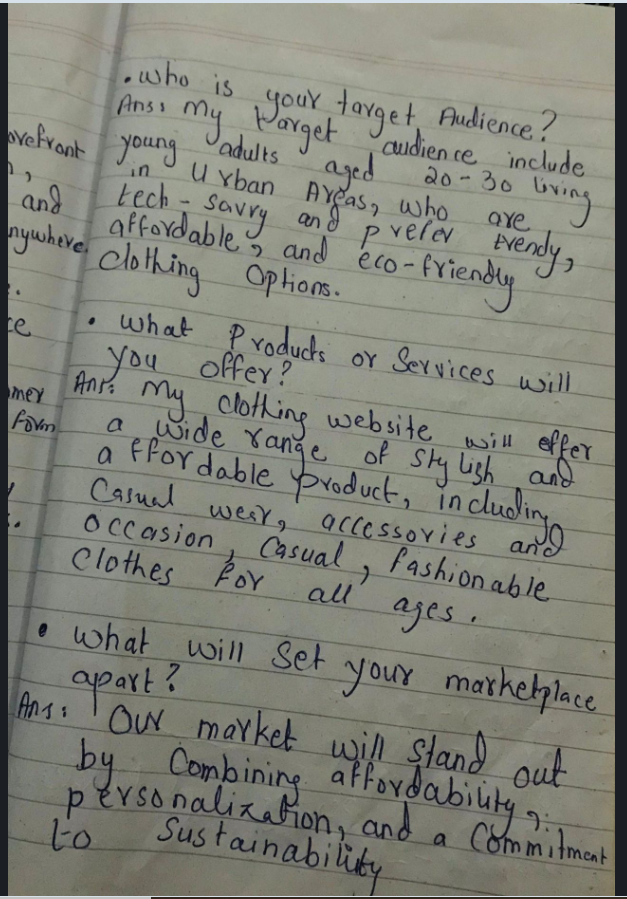 • Who is your target Audience?
Ans: My target audience include
young adults aged 20-30 living
in Urban Areas, who are
tech-savvy and prefer trendy,
affordable, and eco-friendly
Clothing Options.
• What Products or Services will
you offer?
Ans: My clothing website will offer
a wide range of stylish and
affordable product, including
Casual wear, accessories and
occasion, Casual, fashionable
Clothes for all ages.
• What will set your marketplace
apart?
Ans: Our market will stand out
by Combining affordability,
personalization, and a Commitment
to Sustainability
and
nywhere.
mer
form